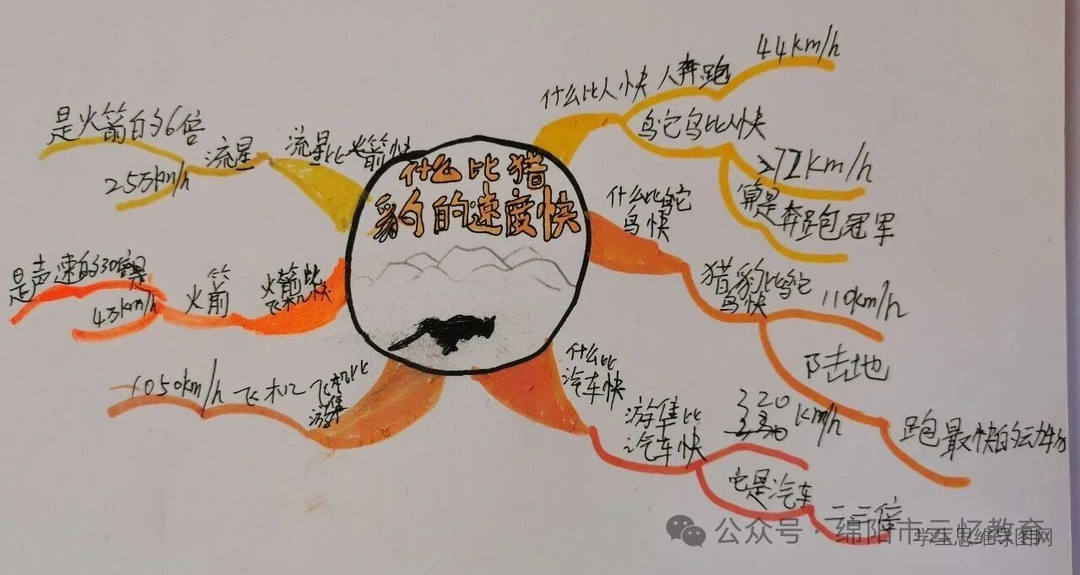 什么比猎
豹的速度快
什么比人快
人奔跑
44km/h
鸵鸟比人快
72km/h
算是奔跑冠军
什么比鸵
鸟快
猎豹比鸵
鸟快
110km/h
陆地
跑最快的动物
什么比
汽车快
游隼比
汽车快
320 km/h
它是汽车
二三倍
飞机比
游隼
飞机
1050km/h
火箭比
飞机快
火箭
4万km/h
是声速的30倍
流星比火箭快
流星
25万km/h
是火箭的6倍
公众号·绵阳市云忆教育
学生思维导图网